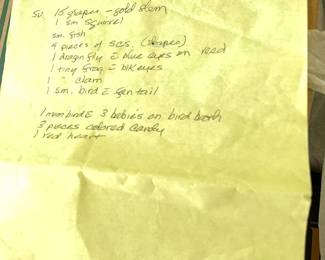 Su 15 grapes - gold stem
1 sm squirrel
sm. fish
4 pieces of scs. (shapes)
1 dragon fly = blue eyes on reed
1 tiny frog = blk eyes
1 " clam
1 sm. bird = fan tail
1 mom bird = 3 babies on bird bath
3 pieces colored candy
1 red heart